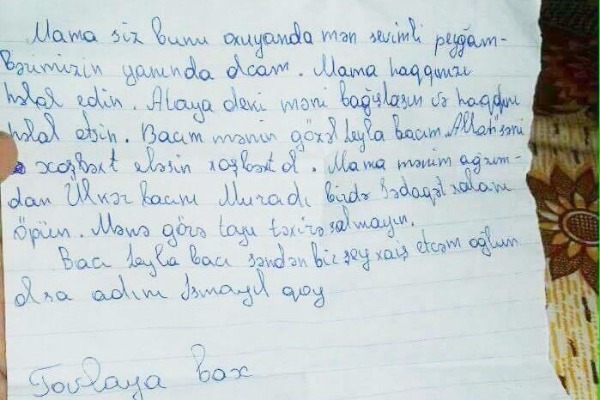 Mama siz bunu oxuyanda mən sevimli peyğəm-
bərimizin yanında olcam. Mama haqqınızı
həlal edin. Ataya deni məni bağışlasın və haqqını
həlal etsin. Bacım mənim gözəl Leyla bacım. Allah səni
xoşbəxt eləsin xoşbəxt ol. Mama mənim ağzım-
dan Ülkər bacımı Muradı birdə Sədaqət xalanı
öpün. Mənə görə toyu təxirə salmayın.
Bacı Leyla bacı səndən bir şey xaiş etcəm oğlun
olsa adını İsmayıl qoy
Tovlaya bax